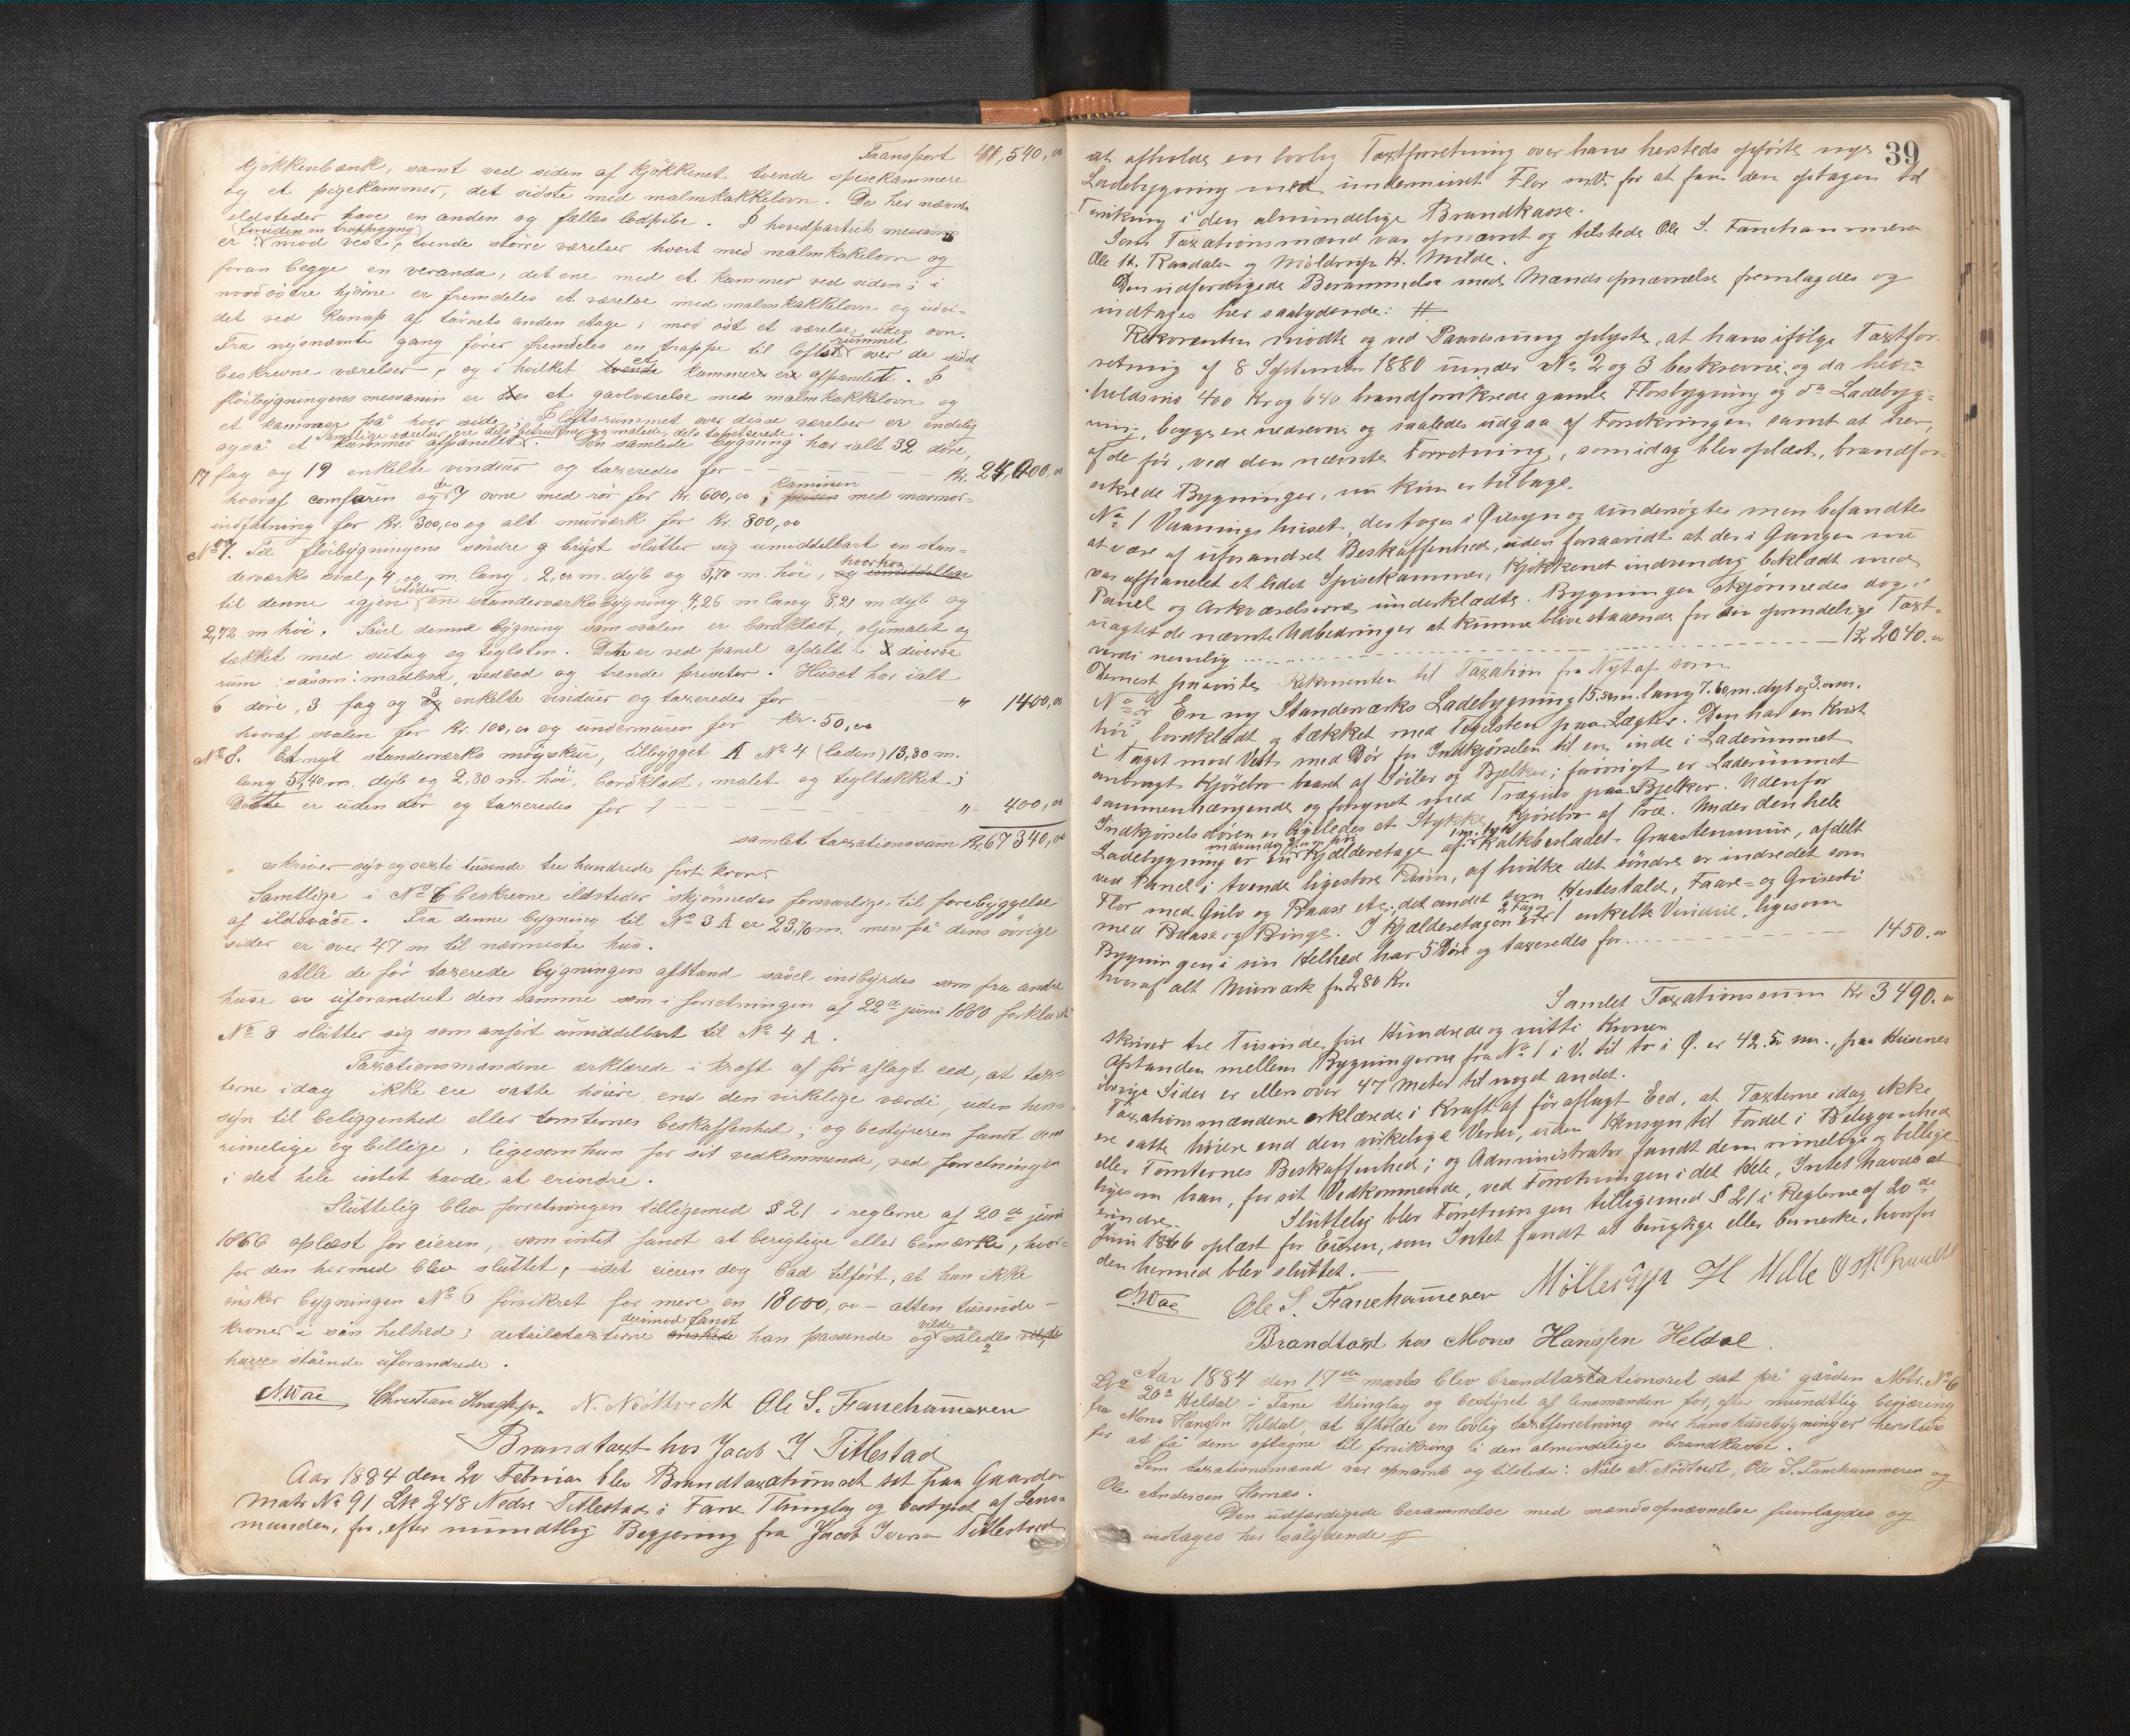 Transport 41,540,00
kjøkkenbænk, samt ved siden af kjøkkenet tvende spisekammere
og et pigekammer, det sidste med malmkakkelovn. De her nævnte
ildsteder have en anden og fælles lodpibe. I hovedpartiets mesanin
(foruden en trappegang)
er mod vest, tvende större værelser hvert med malmkakelovn og
foran begge en veranda, det ene med et kammer ved siden; i
nordöstre hjörne er fremdeles et værelse med malmkakkelovn og udvi-
det ved kanap af tårnets anden etage; mod öst et værelse uden ovn.
Fra nysnævnte gang förer fremdeles en trappe til loftsrummet over de sidst
beskrevne værelser, og i hvilket et kammer er afpanelet. I
flöibygningens mesanin er et gavlværelse med malmkakkelovn og
et kammer på hver side; I loftsrummet over disse værelser er endelig
også et kammer afpanelet. Den samlede bygning har ialt 32 döre,
Samtlige værelser ere dels betrukne og malede, dels tapetserede.
17 fag og 19 enkelte vinduer og taxeredes for — Kr. 24,000,00
hvoraf comfuren og de 7 ovne med rör for Kr. 600,00 ; kaminen med marmor-
indfatning for Kr. 300,00 og alt murværk for Kr. 800,00
No 7. Til flöibygningens söndre gbryst slutter sig umiddelbart en stan-
derværks sval, 4,00 m. lang, 2,00 m. dyb og 3,70 m. höi, hvorhos
til denne igjen stöder en standerværksbygning 4,26 m lang 8,21 m dyb og
2,72 m höi. Såvel denne bygning som svalen er bordklædt, oljemalet og
tækket med sutag og teglsten. Den er ved panel afdelt i diverse
rum såsom: madbod, vedbod og tvende priveter. Huset har ialt
6 döre, 3 fag og 3 enkelte vinduer og taxeredes for — " 1400,00
hvoraf svalen for Kr. 100,00 og undermuren for Kr. 50,00
No 8. Et nyt standerværks möyskur, tilbygget A No 4 (laden) 13,80 m.
lang 5,40 m. dyb og 2,80 m. höi, bordklædt, malet og tegltækket;
Dette er uden dör og taxeredes for — " 400,00
samlet taxationssum Kr. 67340,00
skriver syv og sexti tusinde tre hundrede förti kroner
Samtlige i No 6 beskrevne ildsteder skjönnedes forsvarlige til forebyggelse
af ildsvåde. Fra denne bygning til No 3 A er 23,70 m. men på dens övrige
sider er over 47 m til nærmeste hus.
Alle de för taxerede bygningers afstand såvel indbyrdes som fra andre
huse er uforandret den samme som i forretningen af 22de juni 1880 forklaret
No 8 slutter sig som anfört umiddelbart til No 4 A.
Taxationsmændene erklærede i kraft af för aflagt eed, at tax-
terne idag ikke ere satte höiere, end den virkelige værdi, uden hen-
syn til beliggenhed eller tomternes beskaffenhed; og bestyreren fandt dem
rimelige og billige, ligesom han for sit vedkommende, ved forretningen
i det hele intet havde at erindre.
Sluttelig blev forretningen tilligemed § 21 i reglerne af 20de juni
1866 oplæst for eieren, som intet fandt at berigtige eller bemærke, hvor-
for den hermed blev sluttet, idet eieren dog bad tilfört, at han ikke
önsker bygningen No 6 forsikret for mere en 18000,00 — atten tusinde —
kroner i sin helhed; detailtaxterne derimod fandt han passende og vilde således
have stående uforandrede.
Christian Kragh jr. N. Nödtvedt Ole S. Fanehammeren
Brandtaxt hos Jacob I. Titlestad
Aar 1884 den 20 Februar blev Brandtaxationsret sat paa Gaarden
Matr No 91 Lbr 248 Nedre Titlestad i Fane Thinglag og bestyret af Lens-
manden, for, efter mundtlig Begjering fra Jacob Iversen Titlestad
39
at afholde en lovlig Taxtforretning over hans hersteds opförte nye
Ladebygning med undermuret Flor m.V. for at faa den optagen til
Forsikring i den almindelige Brandkasse.
Som Taxationsmænd var opnævnt og tilstede Ole S. Fanehammeren
Ole H. Raadalen og Möldrup H. Milde.
Den udfærdigede Berammelse med Mandsopnævnelse fremlagdes og
indtages her saalydende: #
Rekvirenten mödte og ved Paavisning oplyste, at hans ifölge Taxtfor-
retning af 8 September 1880 under No 2 og 3 beskrevne og da hen-
holdsvis 400 Kr og 640 brandforsikrede gamle Florsbygning og do Ladebyg-
ning, begge ere nedrevne og saaledes udgaa af Forsikringen samt at her,
af de för, ved den nævnte Forretning, som idag blev oplæst, brandfor-
sikrede Bygninger, nu kun er tilbage.
No 1 Vaaningshuset, der toges i Øiesyn og undersögtes men befandtes
at være af uforandret Beskaffenhed, uden forsaavidt at der i Gangen nu
var afpanelet et lidet Spisekammer, Kjökkenet indvendig beklædt med
Panel og Arkværelserne underklædte. Bygningen skjönnedes dog i
uagtet de nævnte Udbedringer at kunne blive staaende for sin oprindelige Taxt-
værdi nemlig — Kr 2040.00
Dernest paaviste Rekvirenten til Taxation fra Nyt af som
No 2 En ny Standerværks Ladebygning 15.50 m. lang 7.60 m. dyb og 3.00 m.
höi, bordklædt og tækket med Teglsten paa Lægter. Den har en Kvist
i Taget mod Vest med Dör for Indkjörselen til en inde i Laderummet
anbragt Kjörebro baaret af Söiler og Bjelker; forövrigt er Laderummet
sammenhængende og forsynet med Trægulv paa Bjelker. Udenfor
Indkjörselsdören er ligeledes et Stykke Kjörebro af Træ. Under den hele
Ladebygning er en Kjælderetage af 1 m. tyk Kalkbesladet Graastensmur, afdelt
ved Panel i tvende ligestore Rum, af hvilke det söndre er indredet som
Flor med Gulv og Baase etc.; det andet som Hestestald, Faare- og Grisesti
med Baase og Binge. I Kjælderetagen er 2 Fag og 1 enkelte Vindue, ligesom
Bygningen i sin Helhed har 5 Döre og taxeredes for — 1450.00
hvoraf alt Murværk for 280 Kr.
Samlet Taxationssum Kr 3490.00
skriver tre Tusinde fire Hundrede og nitti Kroner
Afstanden mellem Bygningerne fra No 1 i V. til to i Ø. er 42.50 m., paa Husenes
övrige Sider er ellers over 47 Meter til noget andet.
Taxationsmændene erklærede i Kraft af för aflagt Eed, at Taxterne idag ikke
ere satte höiere end den virkelige Værdi, uden Hensyn til Fordel i Beliggenhed
eller Tomternes Beskaffenhed; og Administrator fandt dem rimelige og billige
ligesom han, for sit Vedkommende, ved Forretningen i det Hele, Intet havde at
erindre.
Sluttelig blev Forretningen tilligemed § 21 i Reglerne af 20de
Juni 1866 oplæst for Eieren, som Intet fandt at berigtige eller bemerke, hvorfor
den hermed blev sluttet.
Ole S. Fanehammeren Möllerup H Milde O H Raadal
Brandtaxt hos Mons Hanssen Heldal.
Aar 1884 den 17de marts blev brandtaxtationsret sat på gården Mtr. No 6
20a Heldal i Fane thinglag og bestyret af lensmanden for, efter mundtlig begjæring
fra Mons Hansen Heldal, at afholde en lovlig taxtforretning over hans husebygninger hersteds
for at få dem optagne til forsikring i den almindelige brandkasse.
Som taxationsmænd var opnævnt og tilstede: Niels N. Nödtvedt, Ole S. Fanehammeren og
Ole Andersen Hornæs.
Den udfærdigede berammelse med mændsopnævnelse fremlagdes og
indtages her sålydende #